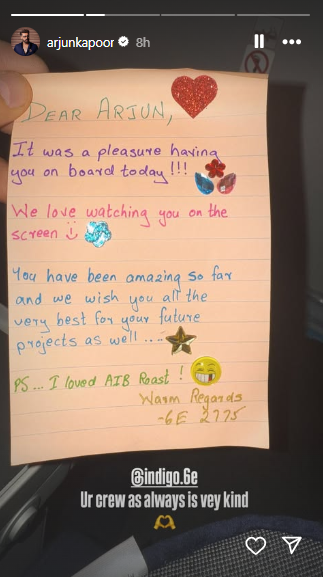 arjunkapoor 8h
DEAR ARJUN,
It was a pleasure having
you on board today!!!
We love watching you on the
screen :)
You have been amazing so far
and we wish you all the
very best for your future
projects as well ....
PS... I loved AIB Roast!
Warm Regards
-6E 2775
@indigo.6e
Ur crew as always is vey kind
🫶